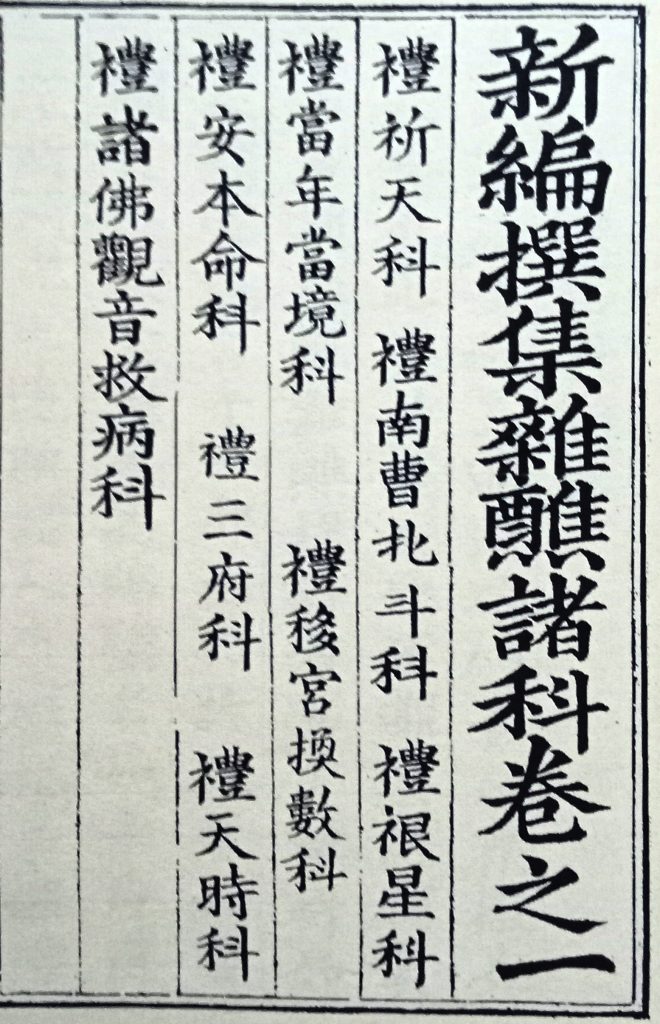 新編撰集雜醮諸科卷之一
禮祈天科 禮南曹北斗科 禮裉星科
禮當年當境科 禮移宮換數科
禮安本命科 禮三府科 禮天時科
禮諸佛觀音救病科